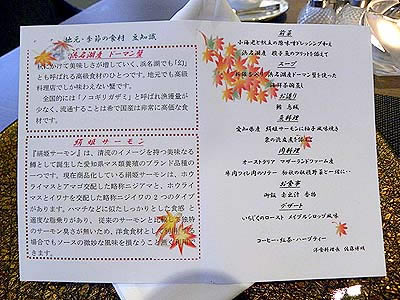 地元・季節の食材 豆知識
浜名湖産 ドーマン蟹
にかけて美味しさが増していく、浜名湖でも『幻』
とも呼ばれる高級食材のひとつです。地元でも高級
料理店でしか味わえない蟹です。
全国的には『ノコギリガザミ』と呼ばれ漁獲量が
少なく、流通することは希で国産は非常に高価な食
材です。
絹姫サーモン
『絹姫サーモン』は、清流のイメージを持つ美味なる
鱒として誕生した愛知県マス類養殖のブランド品種の
一つです。現在商品化している絹姫サーモンは、ホウ
ライマスとアマゴ交配した略称ニジアマと、ホウライ
マスとイワナを交配した略称ニジイワの2つのタイプ
があります。ハマチなどに似たしっかりとした食感と
適度な脂乗りがあり、従来のサーモンと比較し
サーモン臭さが無いため、洋食食材として
場合でもソースの微妙な風味を損なうこと無く
きます。
前菜
スープ
浜名湖産ドーマン蟹を使った
海鮮茶碗蒸し
お造り
鮪 烏賊
魚料理
愛知県産 絹姫サーモンに柚子風味焼き
肉料理
オーストラリア マザーランドファーム産
牛肉フィレのソテー
お食事
御飯 赤出汁 香物
デザート
いちじくのロースト メイプルシロップ風味
コーヒー・紅茶・ハーブティー
洋食料理長 佐藤